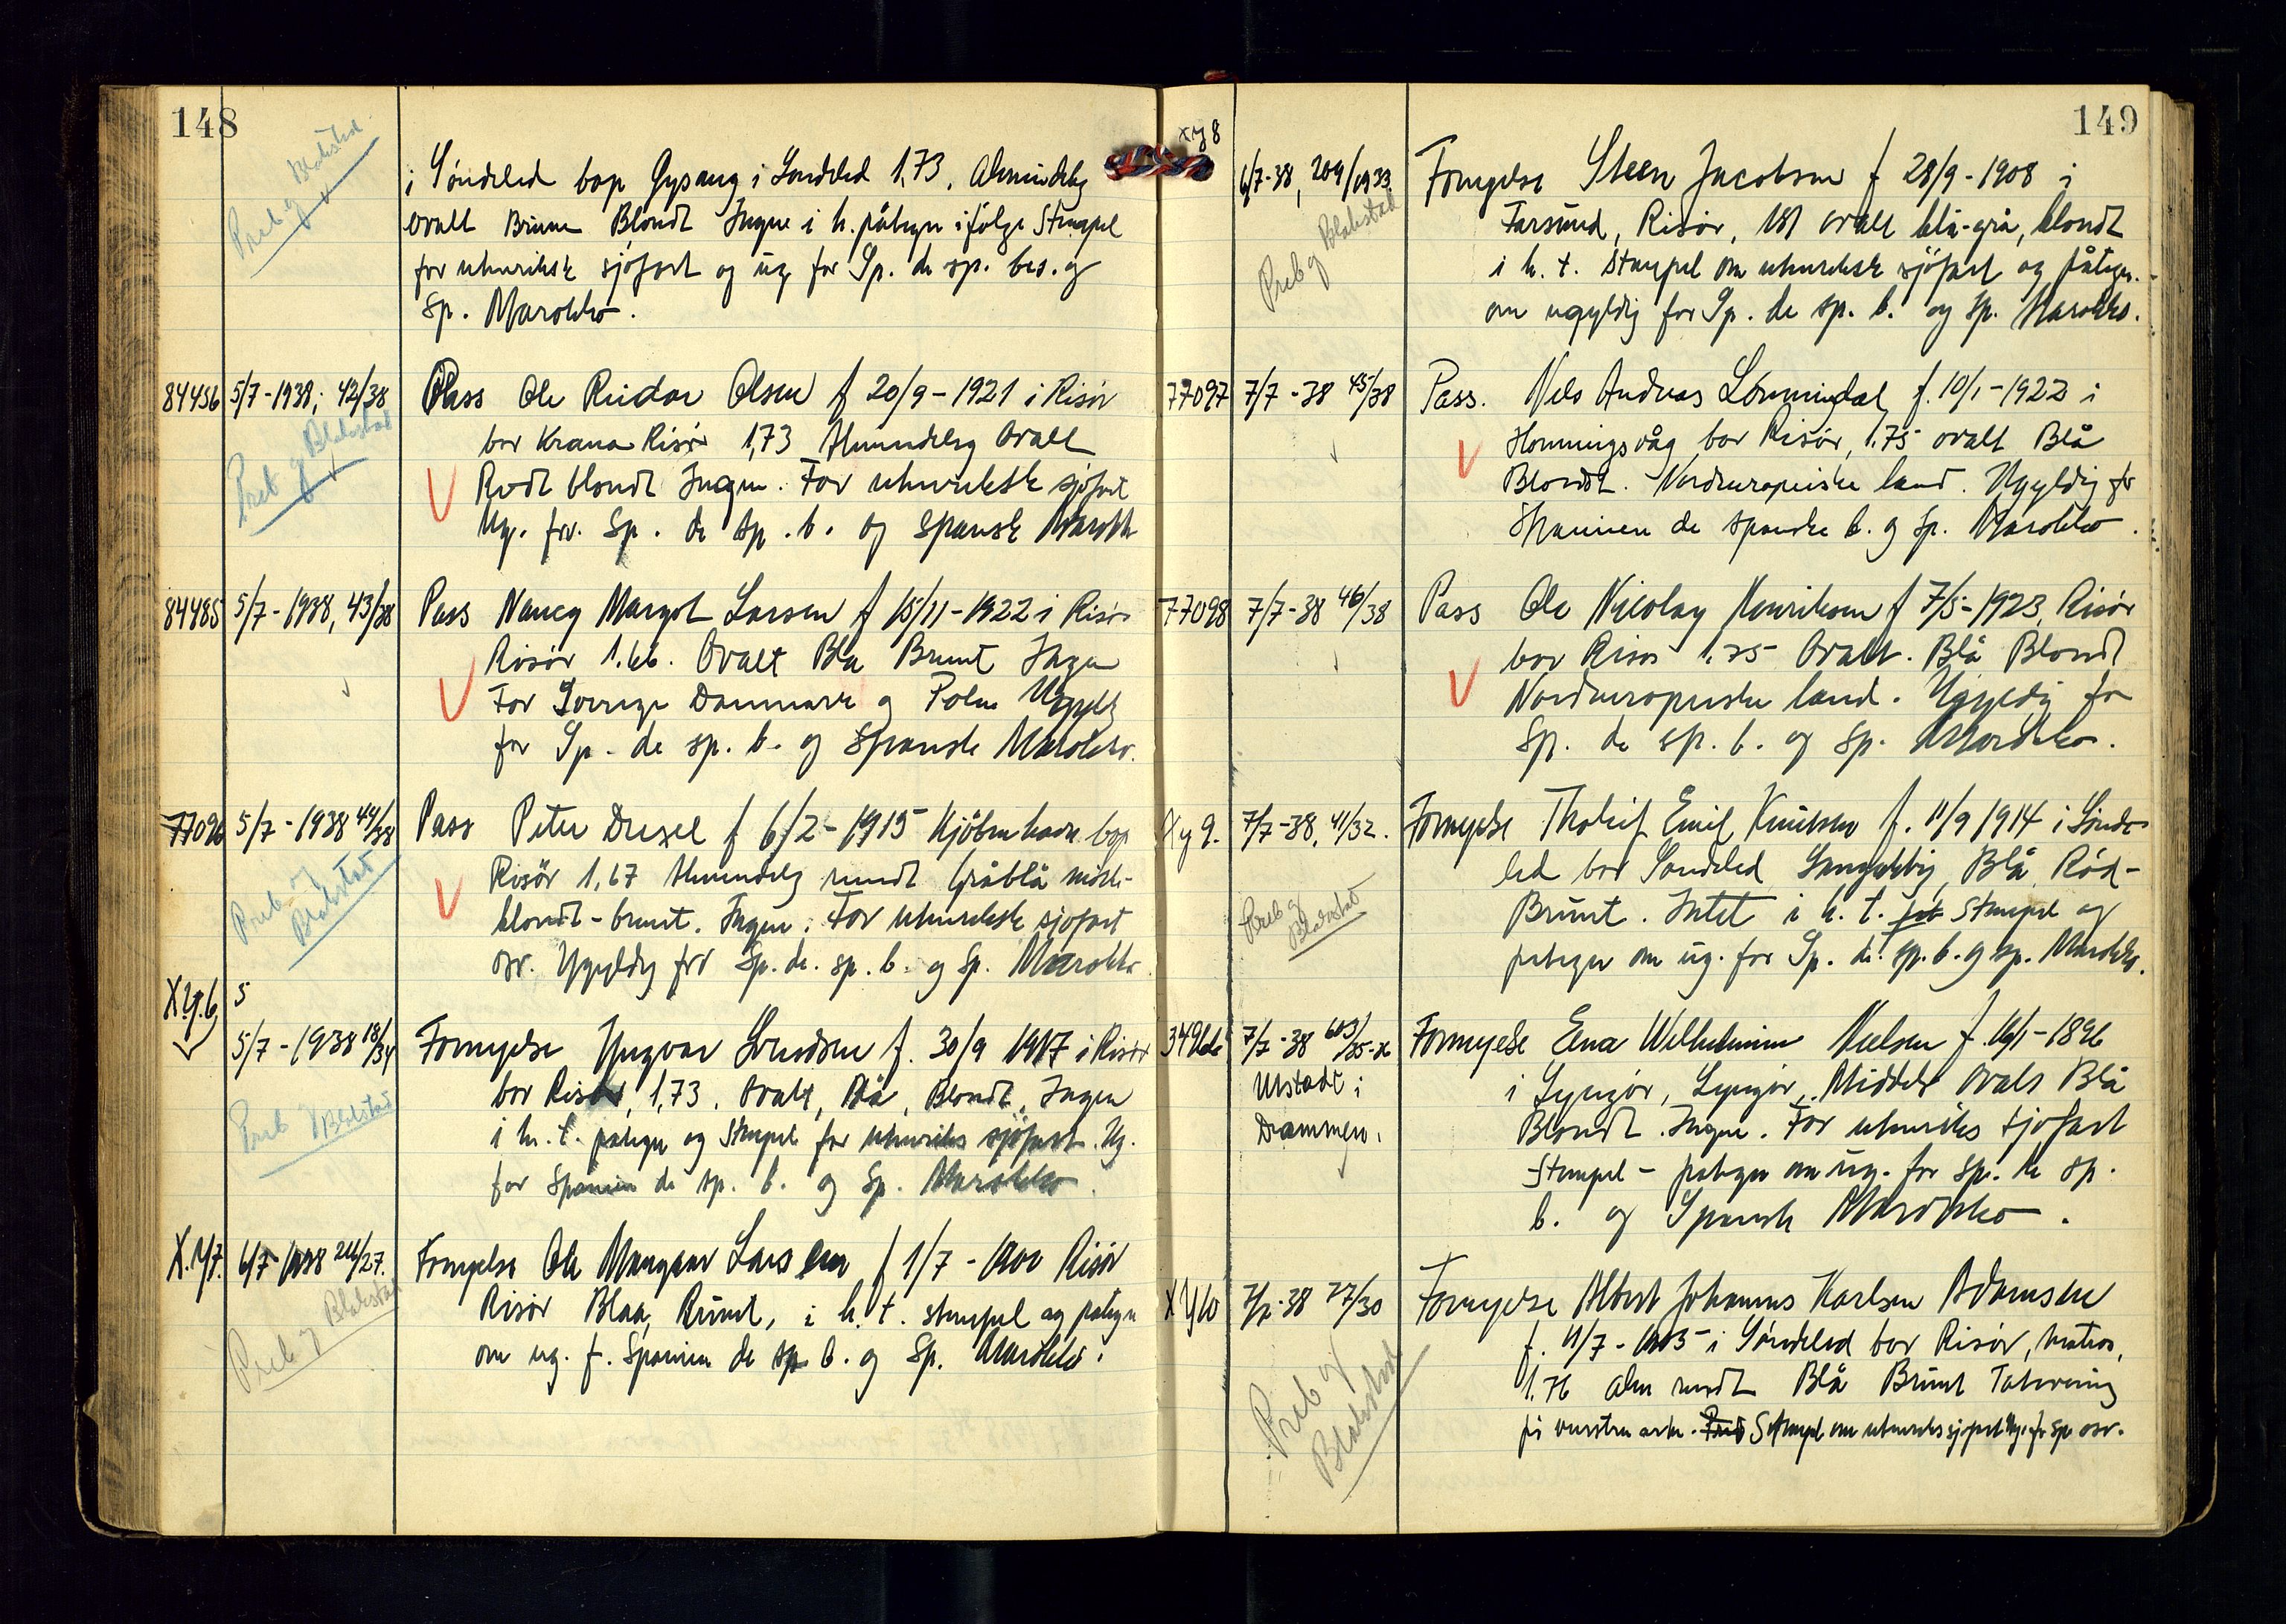 148
i Söndeled bop Gysang i Söndeled 1,73. Almindelig
ovalt Brune Blondt Ingen i h. påtegn ifölge Stempel
for utenriksk sjöfart og ug for Sp. de sp. bes. og
Sp. Marokko.
Preb og Blakstad
84456 5/7-1938; 42/38 Pass Ole Reidar Olsen f 20/9-1921 i Risör
bor Krana Risör 1,73 Almindelig Ovalt
Rødt blondt Ingen. For utenriksk sjöfart
Ug. for. Sp. de sp. b. og Spansk Marokko
Preb og Blakstad
84485 5/7-1938, 43/38 Pass Nancy Margot Larsen f 15/11-1922 i Risör
Risör 1.66. Ovalt Blå Brunt Ingen
For Sverige Danmark og Polen Ugyldig
for Sp. de sp. b. og Spanske Marokko.
77096 5/7-1938 44/38 Pass Peter Drexel f 6/2-1915 Kjöbenhavn bop
Risör 1,67 Almindelig rundt Gråblå mörk-
blondt-brunt. Ingen. For utenriksk sjöfart
osv. Ugyldig for Sp. de. sp. b. og Sp. Marokko
Preb og Blakstad
X.Y.6 5
5/7-1938 18/34 Fornyelse Yngvar Svendsen f. 30/9 1917 i Risör
bor Risör, 1,73. Ovalt, Blå, Blondt, Ingen
i h. t. påtegn og Stempel for utenriks sjöfart. Ug.
for Spanien de sp. b. og Sp. Marokko.
Preb og Blakstad
X.Y.7. 6/7-1938 24/27. Fornyelse Ole Mangnar Larsen f 1/7-1900 Risör
Risör Blaa, Brunt, i h. t. stempel og påtegn
om ug. f. Spanien de sp. b. og Sp. Marokko.
Preb og Blakstad
149
xy 8
6/7-38, 204/1933 Fornyelse Steen Jacobsen f 28/9-1908 i
Farsund, Risör, 181 ovalt blå-grå, blondt
i h. t. Stempel om utenriksk sjöfart og påtegn.
om ugyldig for Sp. de sp. b. og sp. Marokko.
Preb og Blakstad
77097 7/7-38 45/38 Pass. Nils Andreas Lönmindal, f. 10/1-1923 i
Honningsvåg bor Risör, 1.75 ovalt Blå
Blondt. Nordeuropeiske land. Ugyldig for
Spanien de spanske b. og Sp. Marokko.
77098 7/7-38 46/38 Pass Ole Nicolay Henriksen f 7/5-1923, Risör
bor Risör 1.75 Ovalt. Blå Blondt
Nordeuropeiske land. Ugyldig for
Sp. de sp. b. og Sp. Marokko.
Xy 9. 7/7-38, 41/32. Fornyelse Tholeif Emil Knutsen f. 11/9 1914 i Sönde-
led bor Söndeled, Blå, Röd-
Brunt. Intet i h. t. Stempel og
påtegn om ug. for Sp. de. sp. b. og sp. Marokko.
Preb og Blakstad
7/7-38 Fornyelse Elna Wilhelmine Nielsen f. 16/1-1896
Utstedt i Drammen.
i Lyngör, Lyngör, Middels Ovalt Blå
Blondt. Ingen. For utenriks sjöfart
Stempel - påtegn om ug. for sp. de sp.
b. og Spansk Marokko.
X Y 10 7/7-38 77/30 Fornyelse Albert Johannes Karlsen Adamsen
f. 11/7-1903 i Söndeled bor Risör, matros,
1.76 alm rundt Blå Brunt Tatovering
på venstre arm. Stempel om utenriks sjöfart Ug. f. Sp osv.
Preb og Blakstad